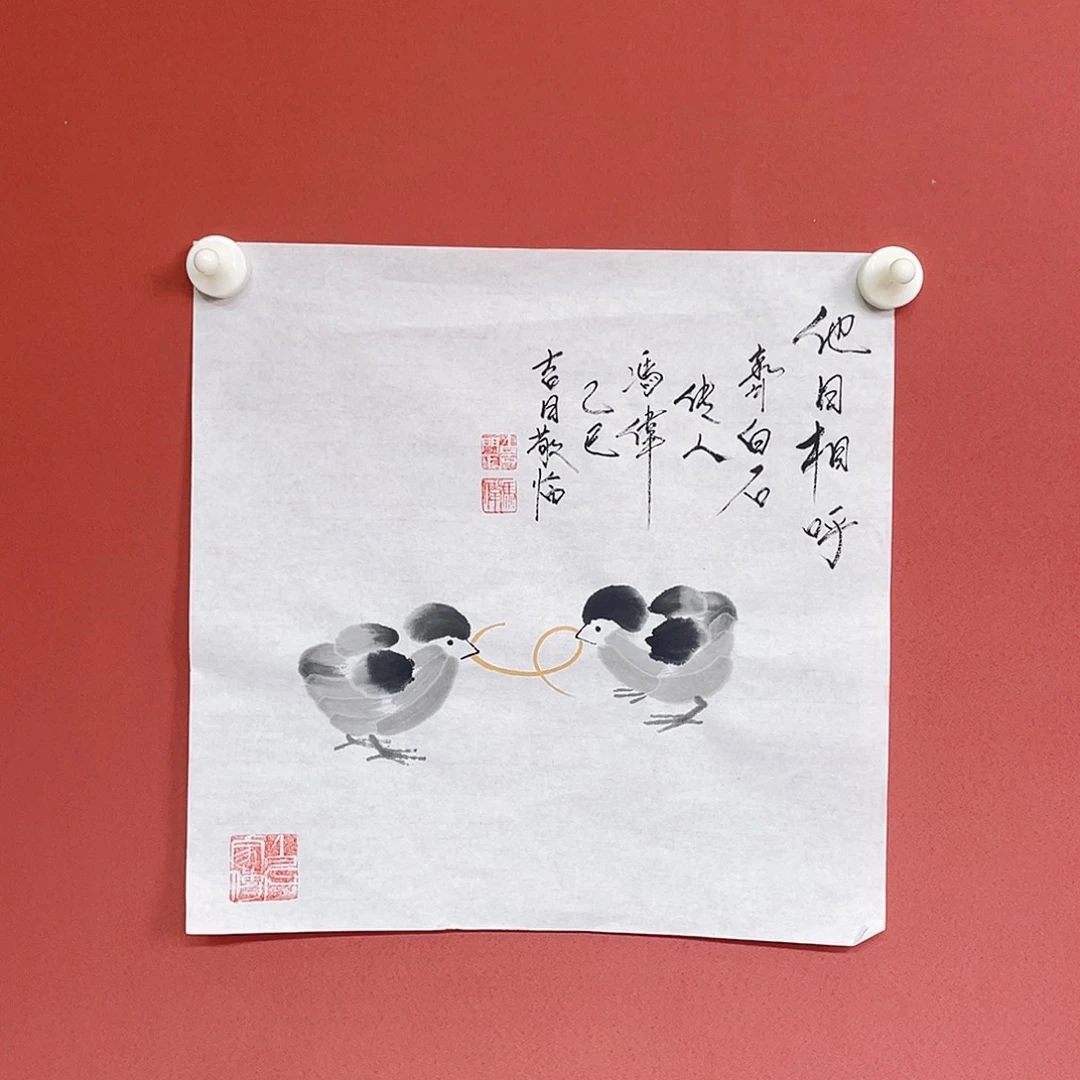 他日相呼
齐白石
传人
冯伟
己巳
吉日敬临